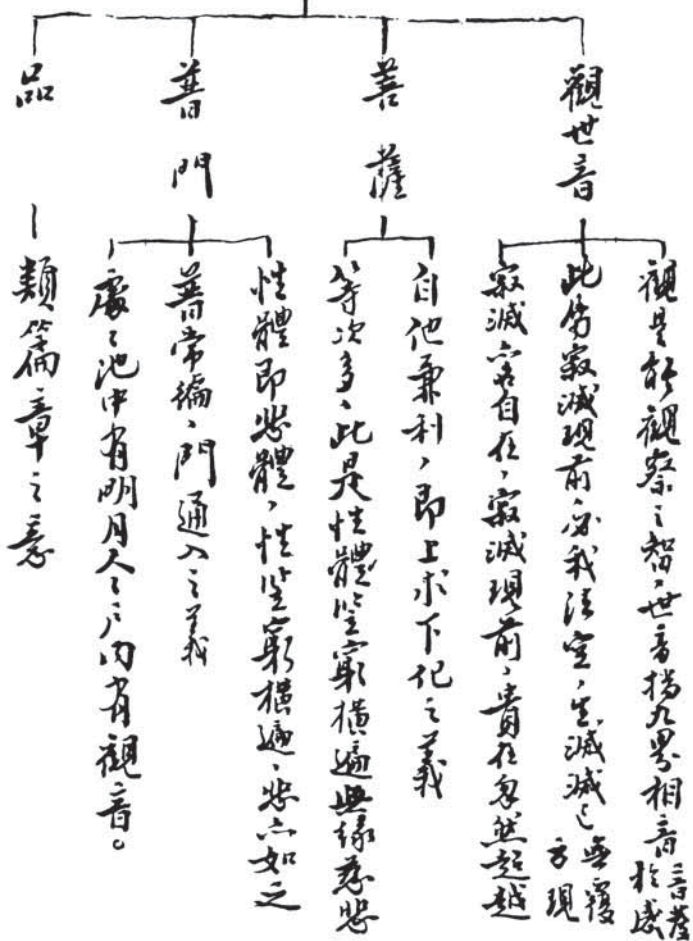 觀世音
觀是能觀察之智、世音指九界相音
此屬寂滅現前、必我法空、生滅滅已
寂滅亦名自在、寂滅現前、貴在忽然超越
菩薩
自他兼利、即上求下化之義
等次多、此是性體豎窮橫遍無緣慈悲
普門
性體即悲體、性豎窮橫遍、悲亦如之
普常徧、門通入之義
處處池中有明月人人戶內有觀音。
品
類篇章之意